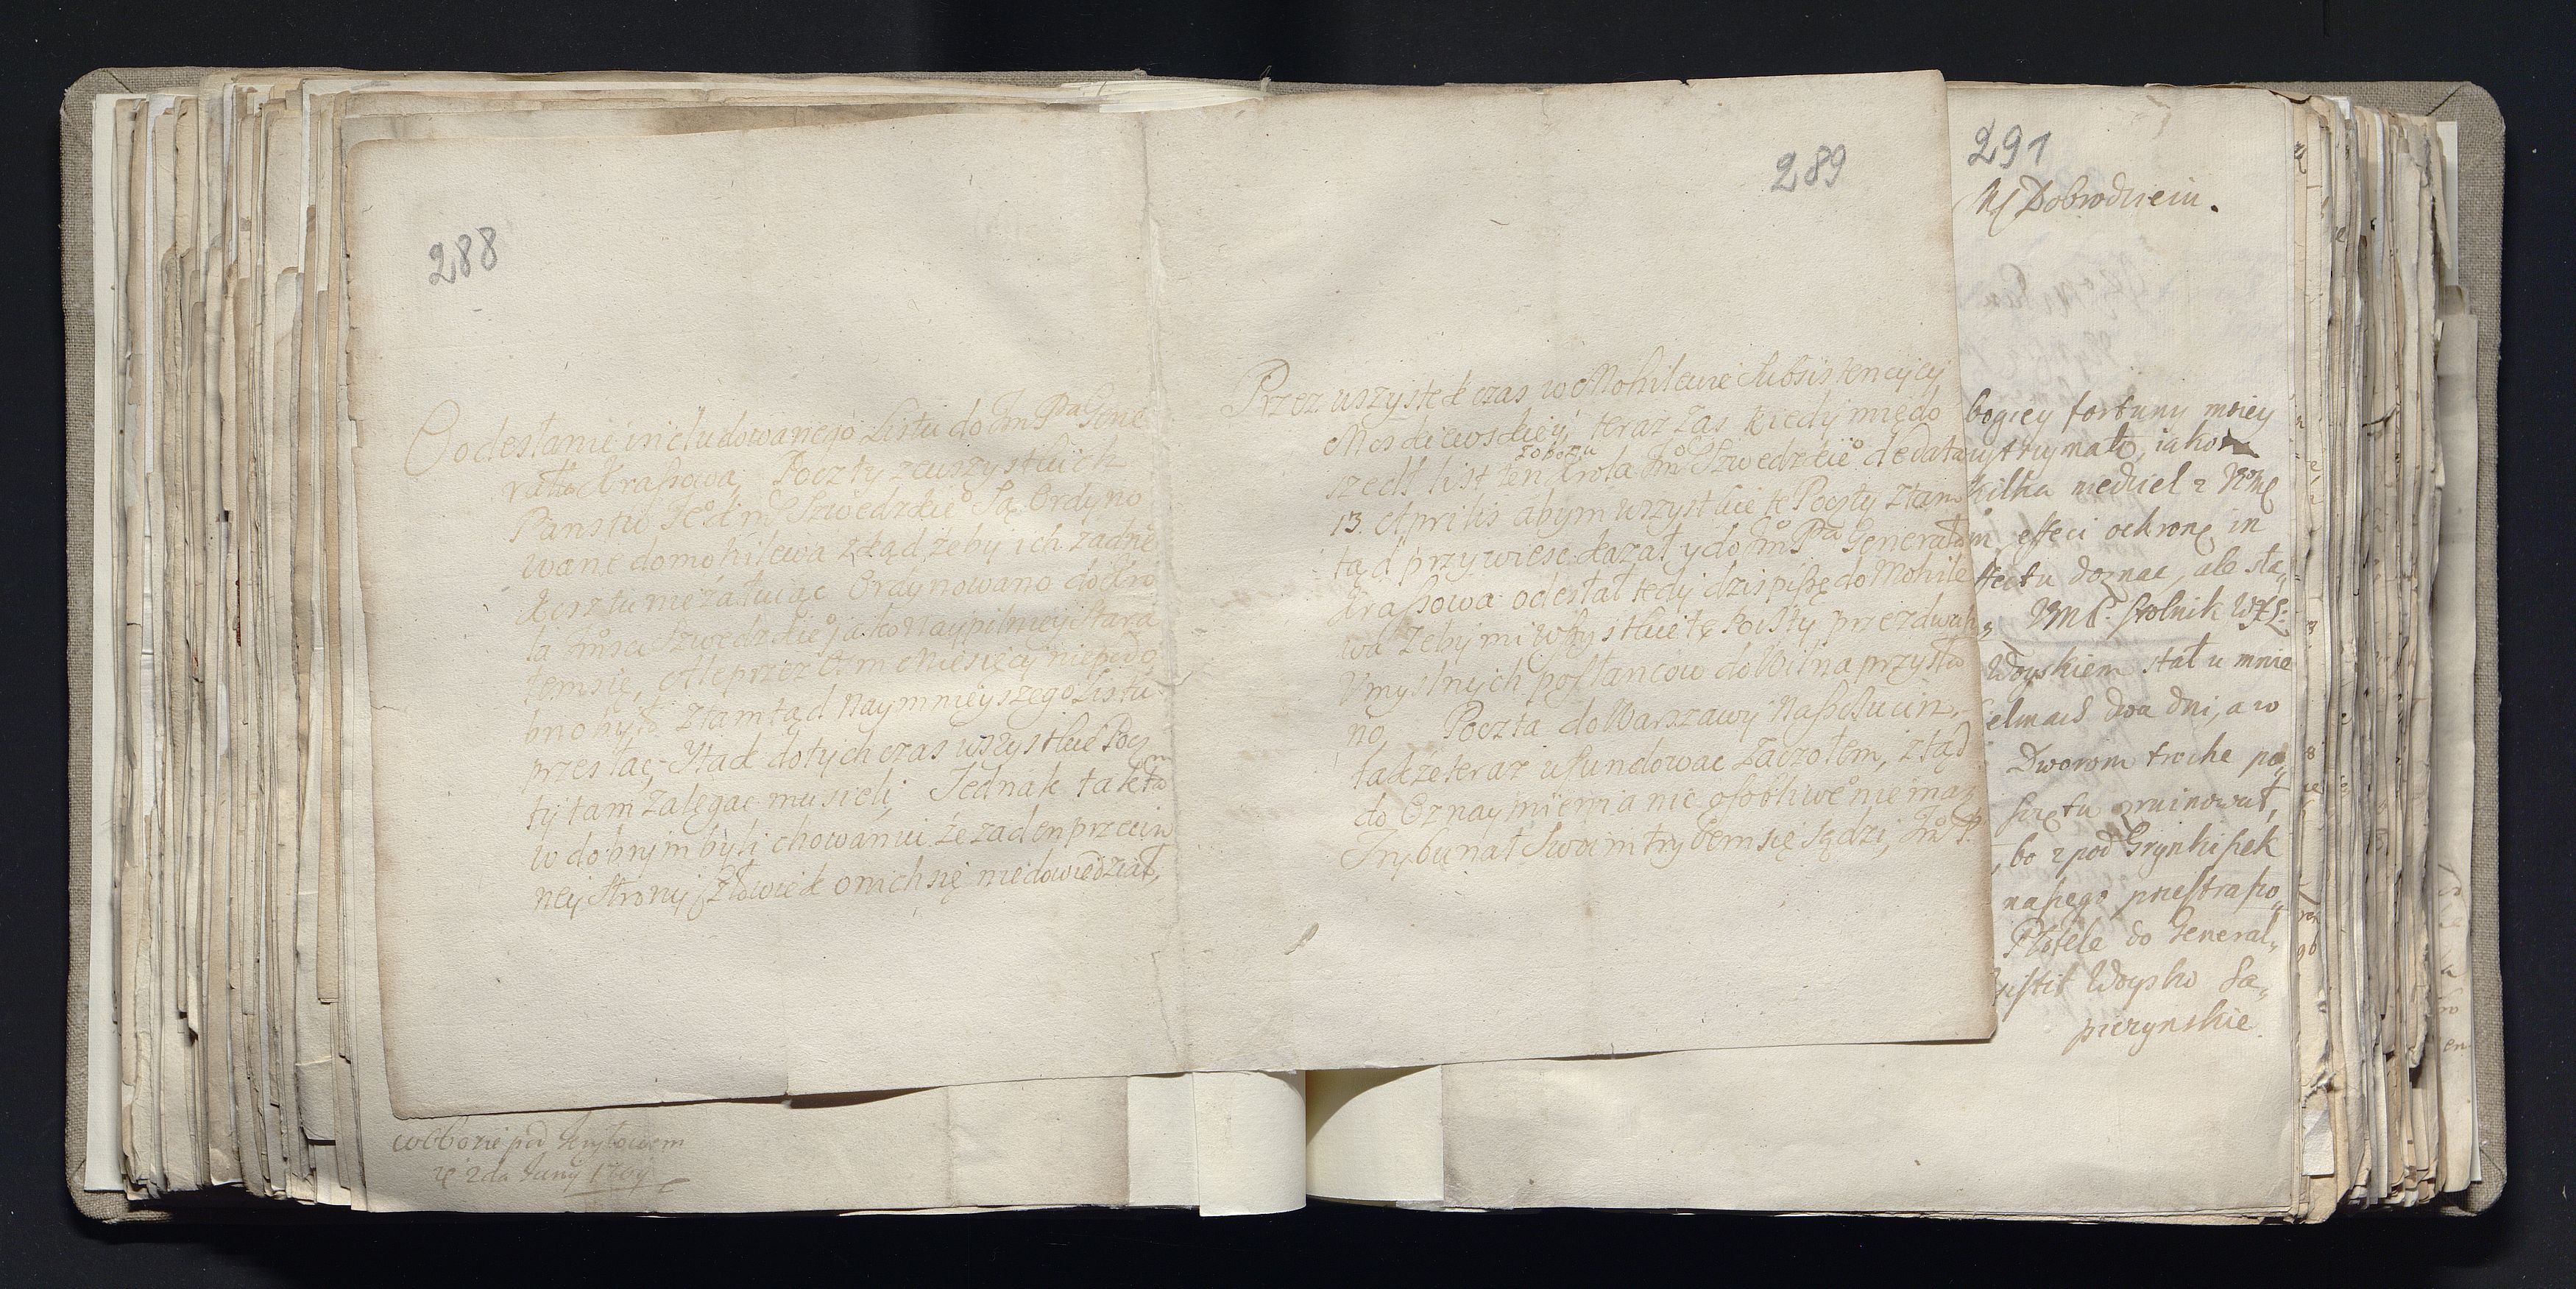 288
O odesłanie includowanego Listu do Jm Pa Gene
rała Kraſsowa, Poczty ze wszystkich
Panstw Je Szwedzkie Są Ordyno
wane do mohilewa zkąd żeby ich żadne
Kosztu nie załuiąc Ordynowano do Kro
la Jmsci Szwedzkie jako Naypilniey Stara
łem się, Ale przez Osm Miesięcy niepodo
bno było ztamtąd Naymnieyszego Listu
przesłac, Y tak dotych czas wszystkie Pocz
ty tam zalęgac musieli, Jednak tak
w dobrym byli chowaniu że zaden przeciw
ney Strony Człowiek o nich się niedowiedział,
w Obozie pod Kryłowem
2da Juny 1709
289
Przez wszystek czas w Mohilewie Subsistencyey
Moskiewskiey teraz zas kiedy mię do
z obozu
szedł list ten Krola Jm Szwedzkie de data
13. Aprilis abym wszystkie te Poczty ztam
tąd przywiesc kazał y do Jm Pa Generała
Kraſsowa odesłał tedy dzis piszę do Mohile
wa żeby mi wszystkie tę Poczty przez dwuch
Vmyslnych posłancow do Wilna przysła
no, Poczta do Warszawy Na
takze teraz ufundowac zaczołem, ztąd
do Oznaymienia nic osobliwe nie mąz
Trybunał Swoim trybem się Sądzi, Jm P.
291
Mſ Dobrodzieiu.
bogiey fortuny moiey
ustrzymało, iako
kilka niedziel z
effeci ochronę in
ffectu doznac, ale sta„
stolnik
Woyskiem stał u mnie
dwa dni, a w
Dworom troche po„
zruinował,
bo z pod Grynkiſzek
naſzego przestraſzo„
do General„
Woysko Sa„
pieżynskie